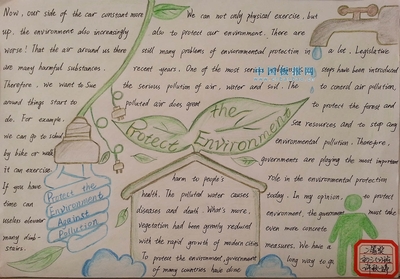 Now, our side of the car constant more
up, the environment also increasingly
worse! That the air around us there
are many harmful substances.
Therefore, we want to Sue
around things start to
do. For example.
we can go to school
by bike or walk
it can exercise.
If you have
time can
useless elevator
many climb-
stairs.
Protect the
Environment
Against
Pollution
We can not only physical exercise, but
also to protect our environment. There are
still many problems of environmental protection in
recent years. One of the most serious
the serious pollution of air, water and soil. The
polluted air does great
中国板报网
Protect the Environment
harm to people's
health. The polluted water causes
diseases and death. What's more,
vegetation had been greatly reduced
with the rapid growth of modern cities
To protect the environment, government
of many countries have done
a lot. Legislative
steps have been introduced
to control air pollution,
to protect the forest and
sea resources and to stop any
environmental pollution. Therefore,
governments are playing the most important
role in the environmental protection
today. In my opinion, to protect
environment, the government must take
even more concrete
measures. We have a
long way to go.